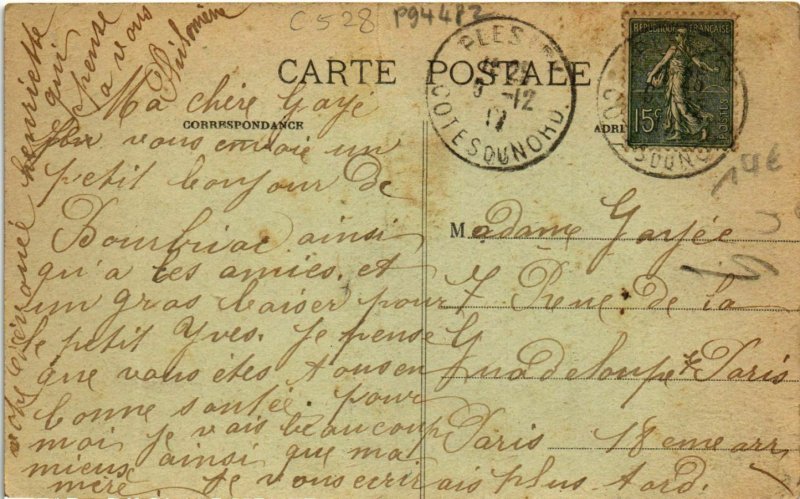 C 528 P94482
CARTE POSTALE
CORRESPONDANCE
Ma chère Gayé
vous envoie un
petit bonjour de
Bourbriac ainsi
qu'a tes amies. et
un gros baiser pour
le petit Yves. Je pense
que vous êtes tous en
bonne santée. pour
moi je vais beaucoup
mieux ainsi que ma
mère. Je vous ecrirais plus tard.
henriette
qui
pense
a vous
PLES
5 -12
17
COTES DU NORD
REPUBLIQUE FRANÇAISE
15c
POSTES
14€
Madame Gayée
7 Rue de la
Guadeloupe Paris
Paris 18eme arr